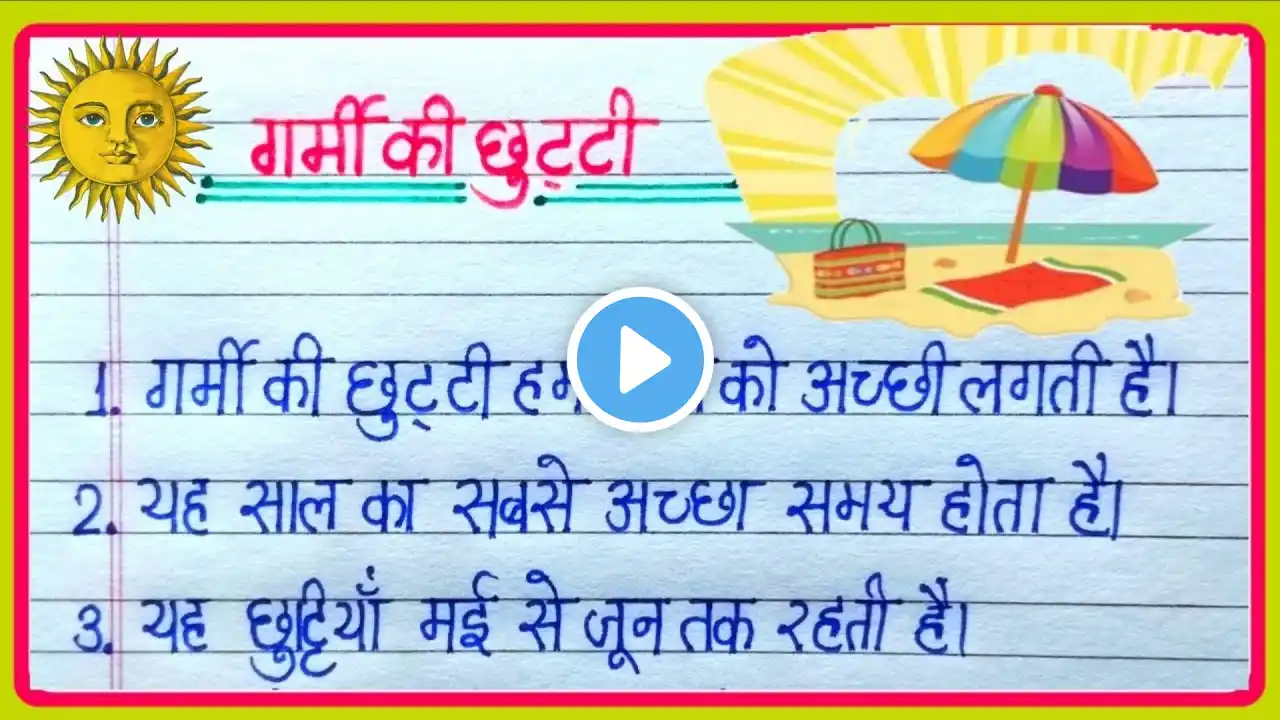 गर्मी की छुट्टी
1. गर्मी की छुट्टी हम को अच्छी लगती है।
2. यह साल का सबसे अच्छा समय होता है।
3. यह छुट्टियाँ मई से जून तक रहती है।